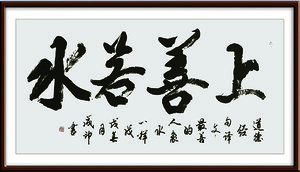 上善若水
道德
经
句译
文:
最善
的
人象
水
一样
戊
戌
月
书